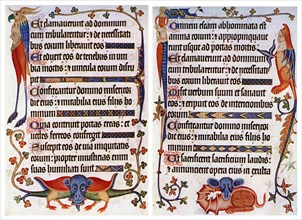 Et clamaverunt ad dominum
cum tribularentur: et de necessitati
bus eorum liberavit eos
Et eduxit eos de tenebris et um
bra mortis: et vincula eorum disru
pit
Confiteantur domino misericor
die eius: et mirabilia eius filiis ho
minum
Quia contrivit portas ereas: et
vectes ferreos confregit
Suscepit eos de via iniquitatis
eorum: propter iniusticias enim
suas humiliati sunt
Omnem escam abhominata est a
nima eorum: et appropinquave
runt usque ad portas mortis
Et clamaverunt ad dominum
cum tribularentur: et de necessita
tibus eorum liberavit eos
Misit verbum suum et sanavit
eos: et eripuit eos de interitionibus
eorum
Confiteantur domino misericor
die eius: et mirabilia eius filiis
hominum
Et sacrificent sacrificium laudis: et
annuncient opera eius in exulta